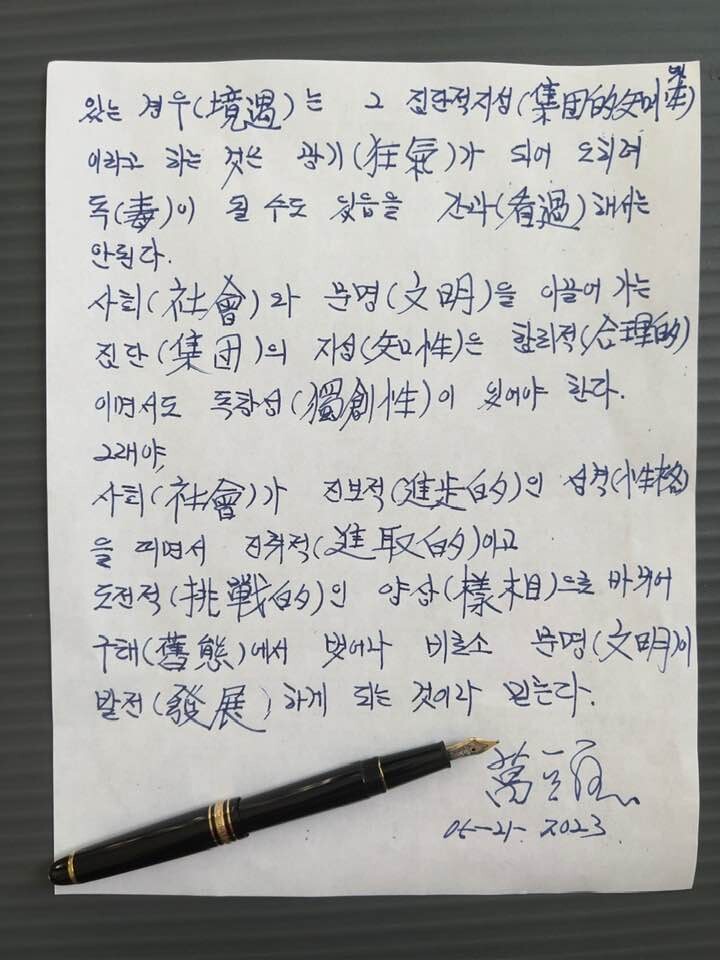 있는 경우(境遇)는 그 집단적지성(集団的知性)
이라고 하는 것은 광기(狂氣)가 되어 오히려
독(毒)이 될 수도 있음을 간과(看過)해서는
안된다.
사회(社會)와 문명(文明)을 이끌어 가는
집단(集団)의 지성(知性)은 합리적(合理的)
이면서도 독창성(獨創性)이 있어야 한다.
그래야,
사회(社會)가 진보적(進步的)인 성격(性格)
을 띠면서 진취적(進取的)이고
도전적(挑戰的)인 양상(樣相)으로 바뀌어
구태(舊態)에서 벗어나 비로소 문명(文明)이
발전(發展)하게 되는 것이라 믿는다.
05-21. 2023.